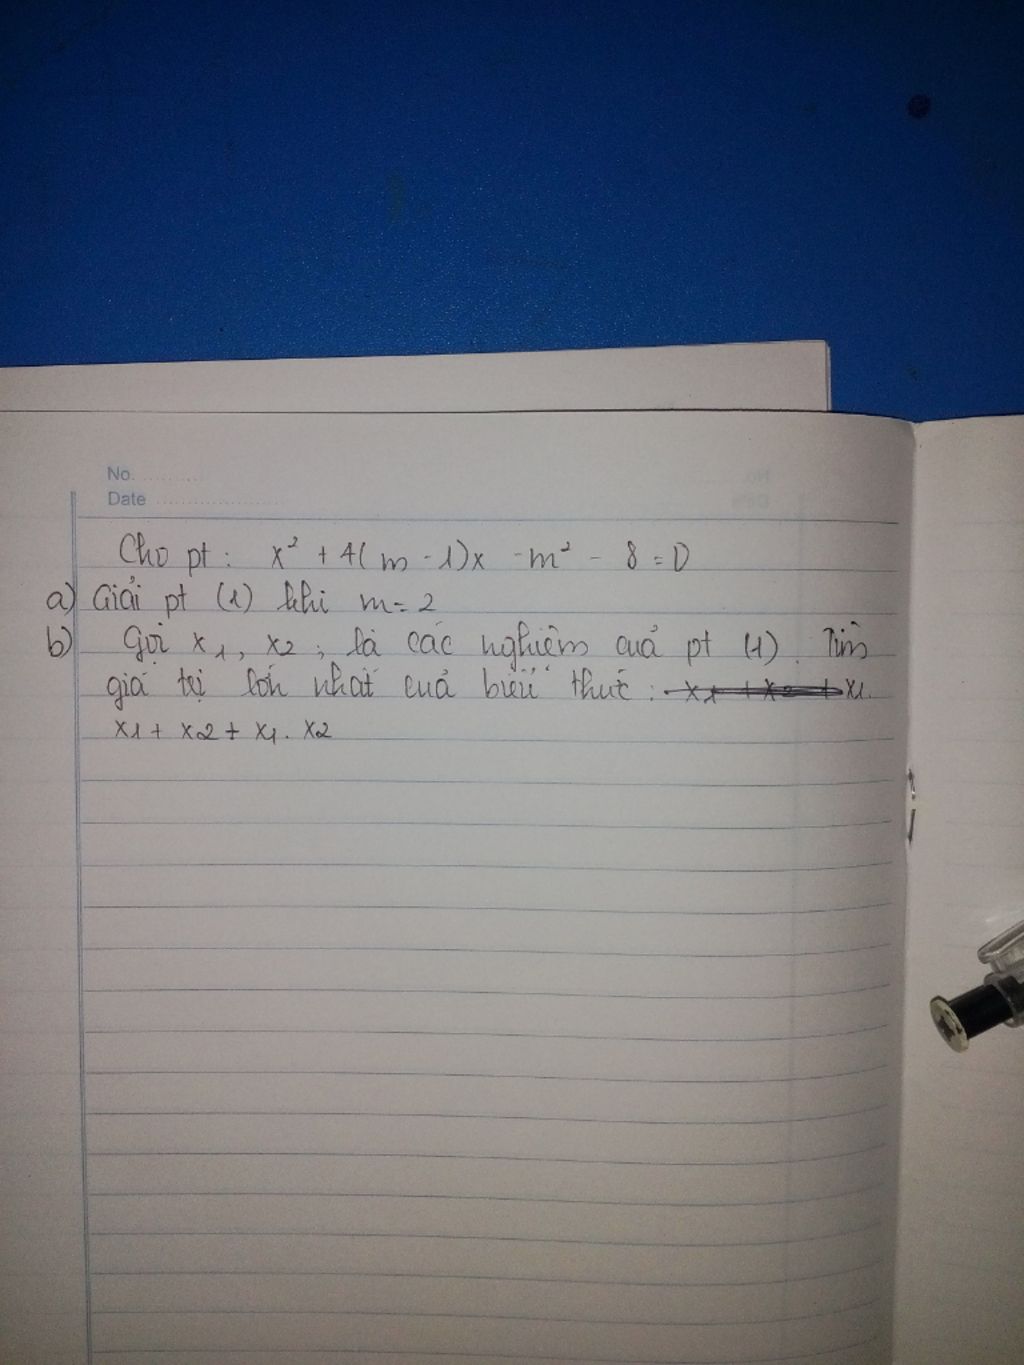 No. ..........
Date ....................
Cho pt : x² + 4( m - 1)x - m² - 8 = 0
a) Giải pt (1) khi m = 2
b) Gọi x1, x2 , là các nghiệm cuả pt (1). Tìm
giá trị lớn nhất cuả biểu thức : x1 + x2 + x1.
x1 + x2 + x1 . x2